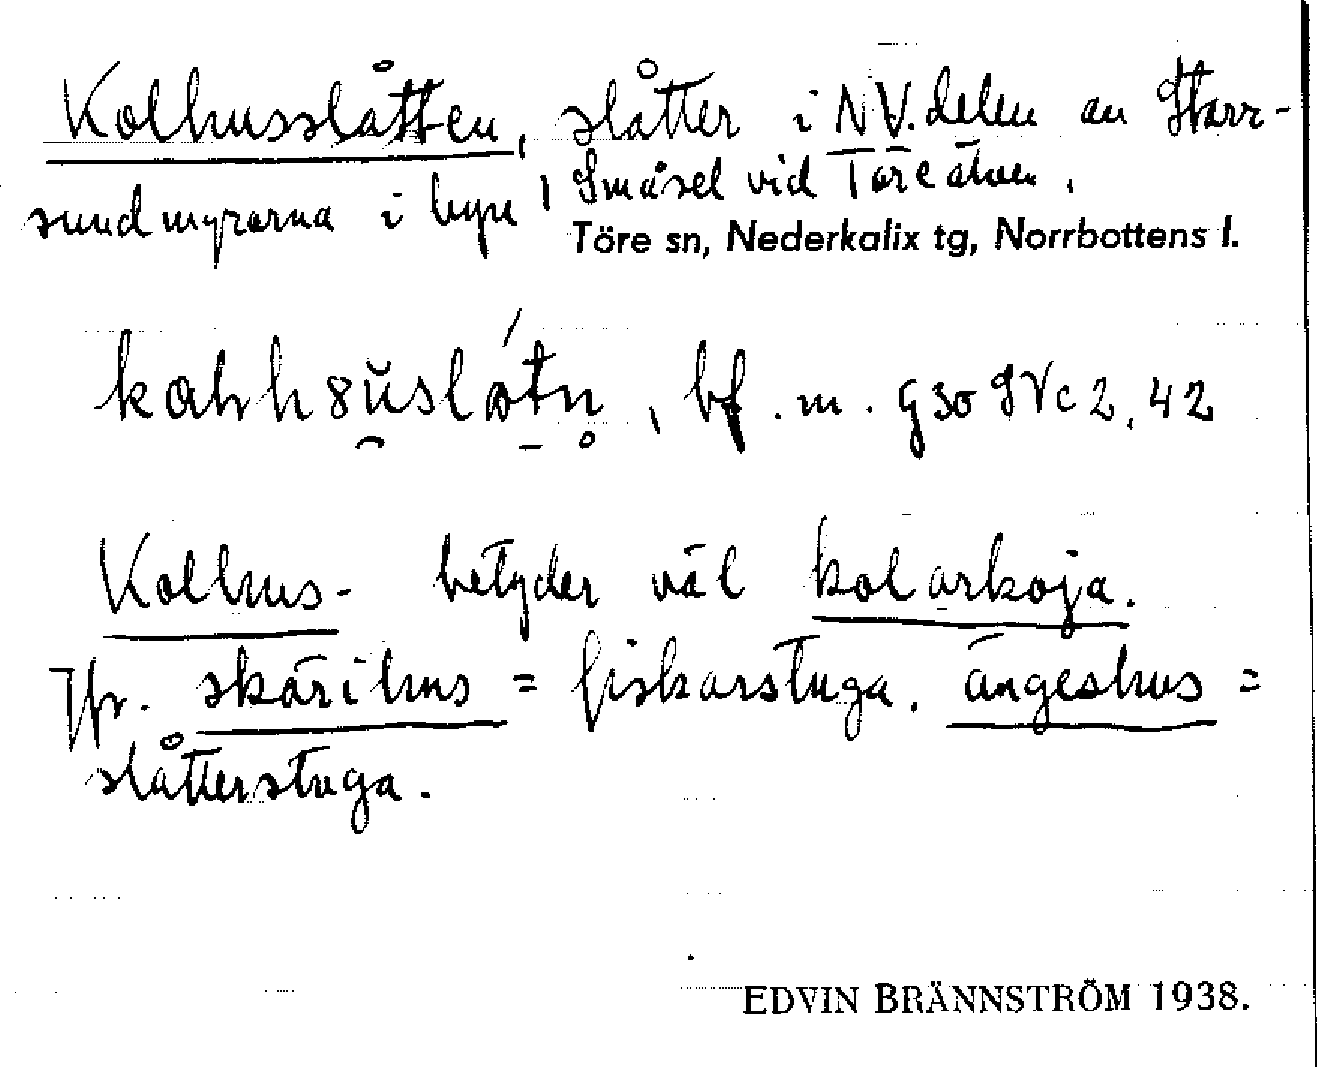 Kolhusslåtten, slåtter i NV. delen av Starr-
sundmyrarna i byn Småsel vid Töre älven.
Töre sn, Nederkalix tg, Norrbottens l.
bf. m.
Kolhus- betyder väl kolarkoja.
Jfr. skärihus = fiskarstuga. ängeshus =
slåtterstuga.
EDVIN BRÄNNSTRÖM 1938.